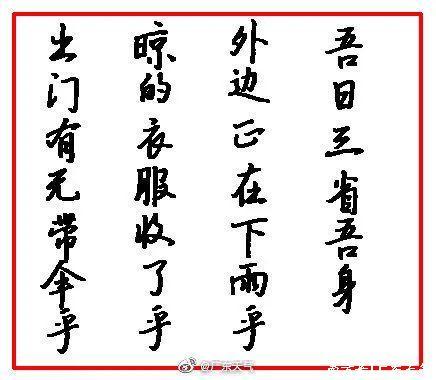 吾日三省吾身
外边正在下雨乎
晾的衣服收了乎
出门有无带伞乎
@广东天气